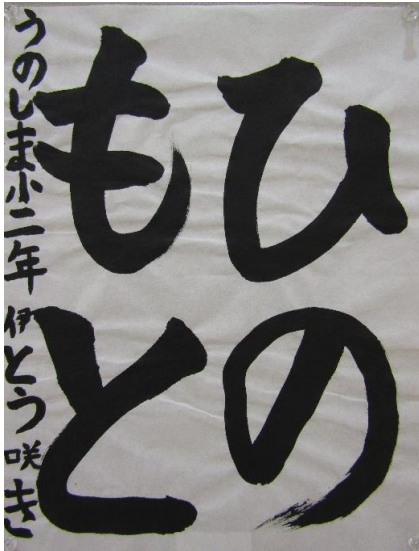 ひの
もと
うのしま小二年 伊とう咲き